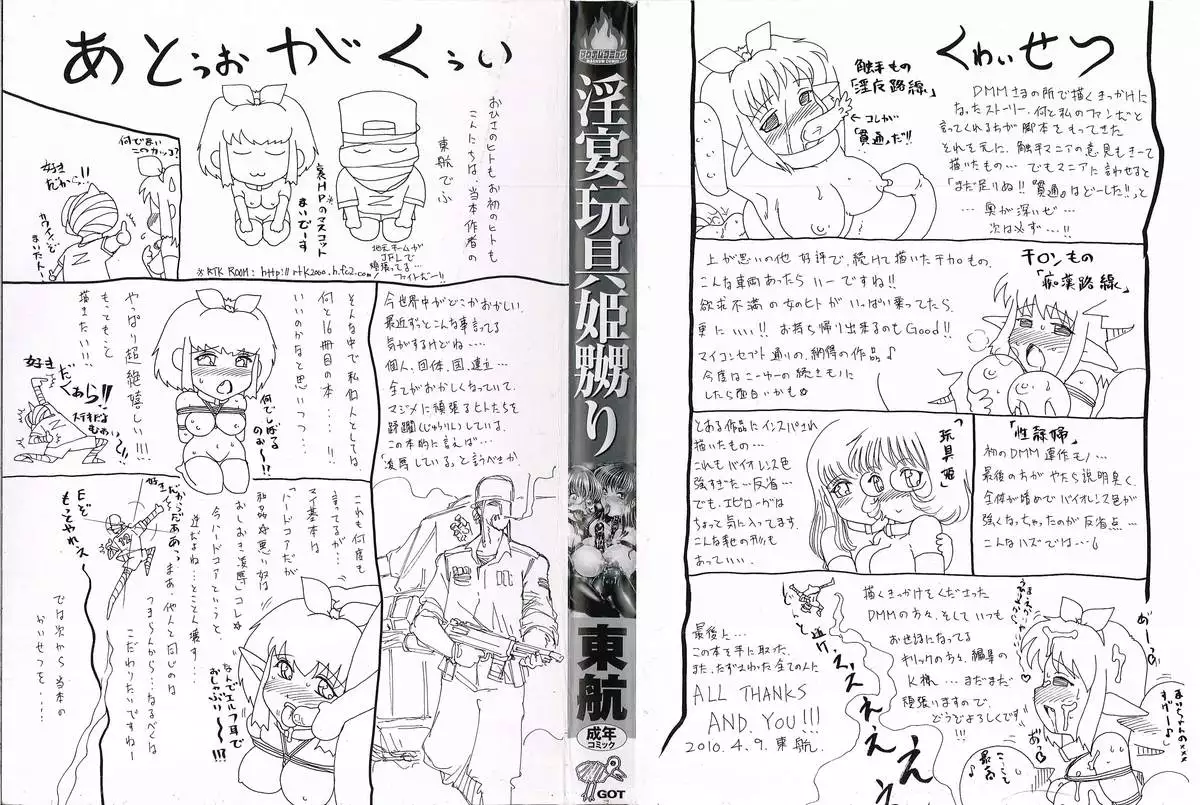 あとぅおがくぅい
おひさのヒトも お初のヒトも
こんにちは、当本作者の
東航でふ
裏HPのマスコット
まいでーす
地元チームが
JFLで
頑張ってる…
ファイトだー!!
※RTK ROOM: http://rtk2000.h.fc2.com/
何で赤い
このカッコ?
好き
だから!!
今世界中がどこかおかしい、
最近ずっとこんな事言ってる
気がするけどね…
個人、団体、国、連立…
全てがおかしくなっていて、
マジメに頑張るヒトたちを
蹂躙(じゅうりん)している、
この本的に言えば…
「凌辱している」と言うべきか、
そんな中で私個人としては
何と16冊目の本…!!
いいのかなと思いつつ…
やっぱり超絶嬉しい!!!
もっともっと
描きたい!!
何でしばる
のぉ〜!!?
好き
だくぁら!!
これも何度も
言ってるが…
マイ基本は
「ハードコア」だが
おしおき凌辱」コレ☆
今ハードコアというと、
逆だよね…とことん壊す…
まあ、他人と同じのは
つまらんから…なるべくは
こだわりたいですねー
では次から当本の
かいせつを…
なんでエルフ耳で
おしゃぶり〜!!?
Eぞ
もってやれぇ
淫宴玩具姫嬲り
東航
成年
コミック
GOT
くわいせつ
触手もの
「淫辱路線」
←コレが
「貫通」だ!!
DMMさまの所で描くきっかけに
なったストーリー、何と私のファンだと
言ってくれる方が脚本をもってきた
それを元に、触手マニアの意見もきいて
描いたもの…でもマニアに言わせると
「まだ足りぬ!!貫通はどーした!!」って
…奥が深いゼ…
次は必ず…!!
チカンもの
「痴漢路線」
上が思いの他 好評で、続けて描いたチカンもの、
こんな車両あったらいーですね!!
欲求不満の女のヒトがいっぱい乗ってたら、
更にいい!! お持ち帰り出来るのもGood!!
マイコンセプト通りの、納得の作品♪
今度はこーゆーの続きものに
したら面白いかも☆
「玩具姫」
とある作品にインスパイされ
描いたもの…
これもバイオレンス色
強すぎた…反省…
でも、エピローグは
ちょっと気に入ってます、
こんな愛の形も
あっていい、
初のDMM連作もの…
最後の方がやたら説明臭く、
全体が暗めでバイオレンス色が
強くなっちゃったのが反省点…
こんなハズでは…
描くきっかけをくださった
DMMの方々、そして いつも
お世話になってる
キリックの方々、編集の
K様、…まだまだ
頑張りますので、
どうぞよろしくです
最後に…
この本を手に取った、
また、たずさわった全ての人に
ALL THANKS
AND YOU!!!
2010.4.9. 東航.